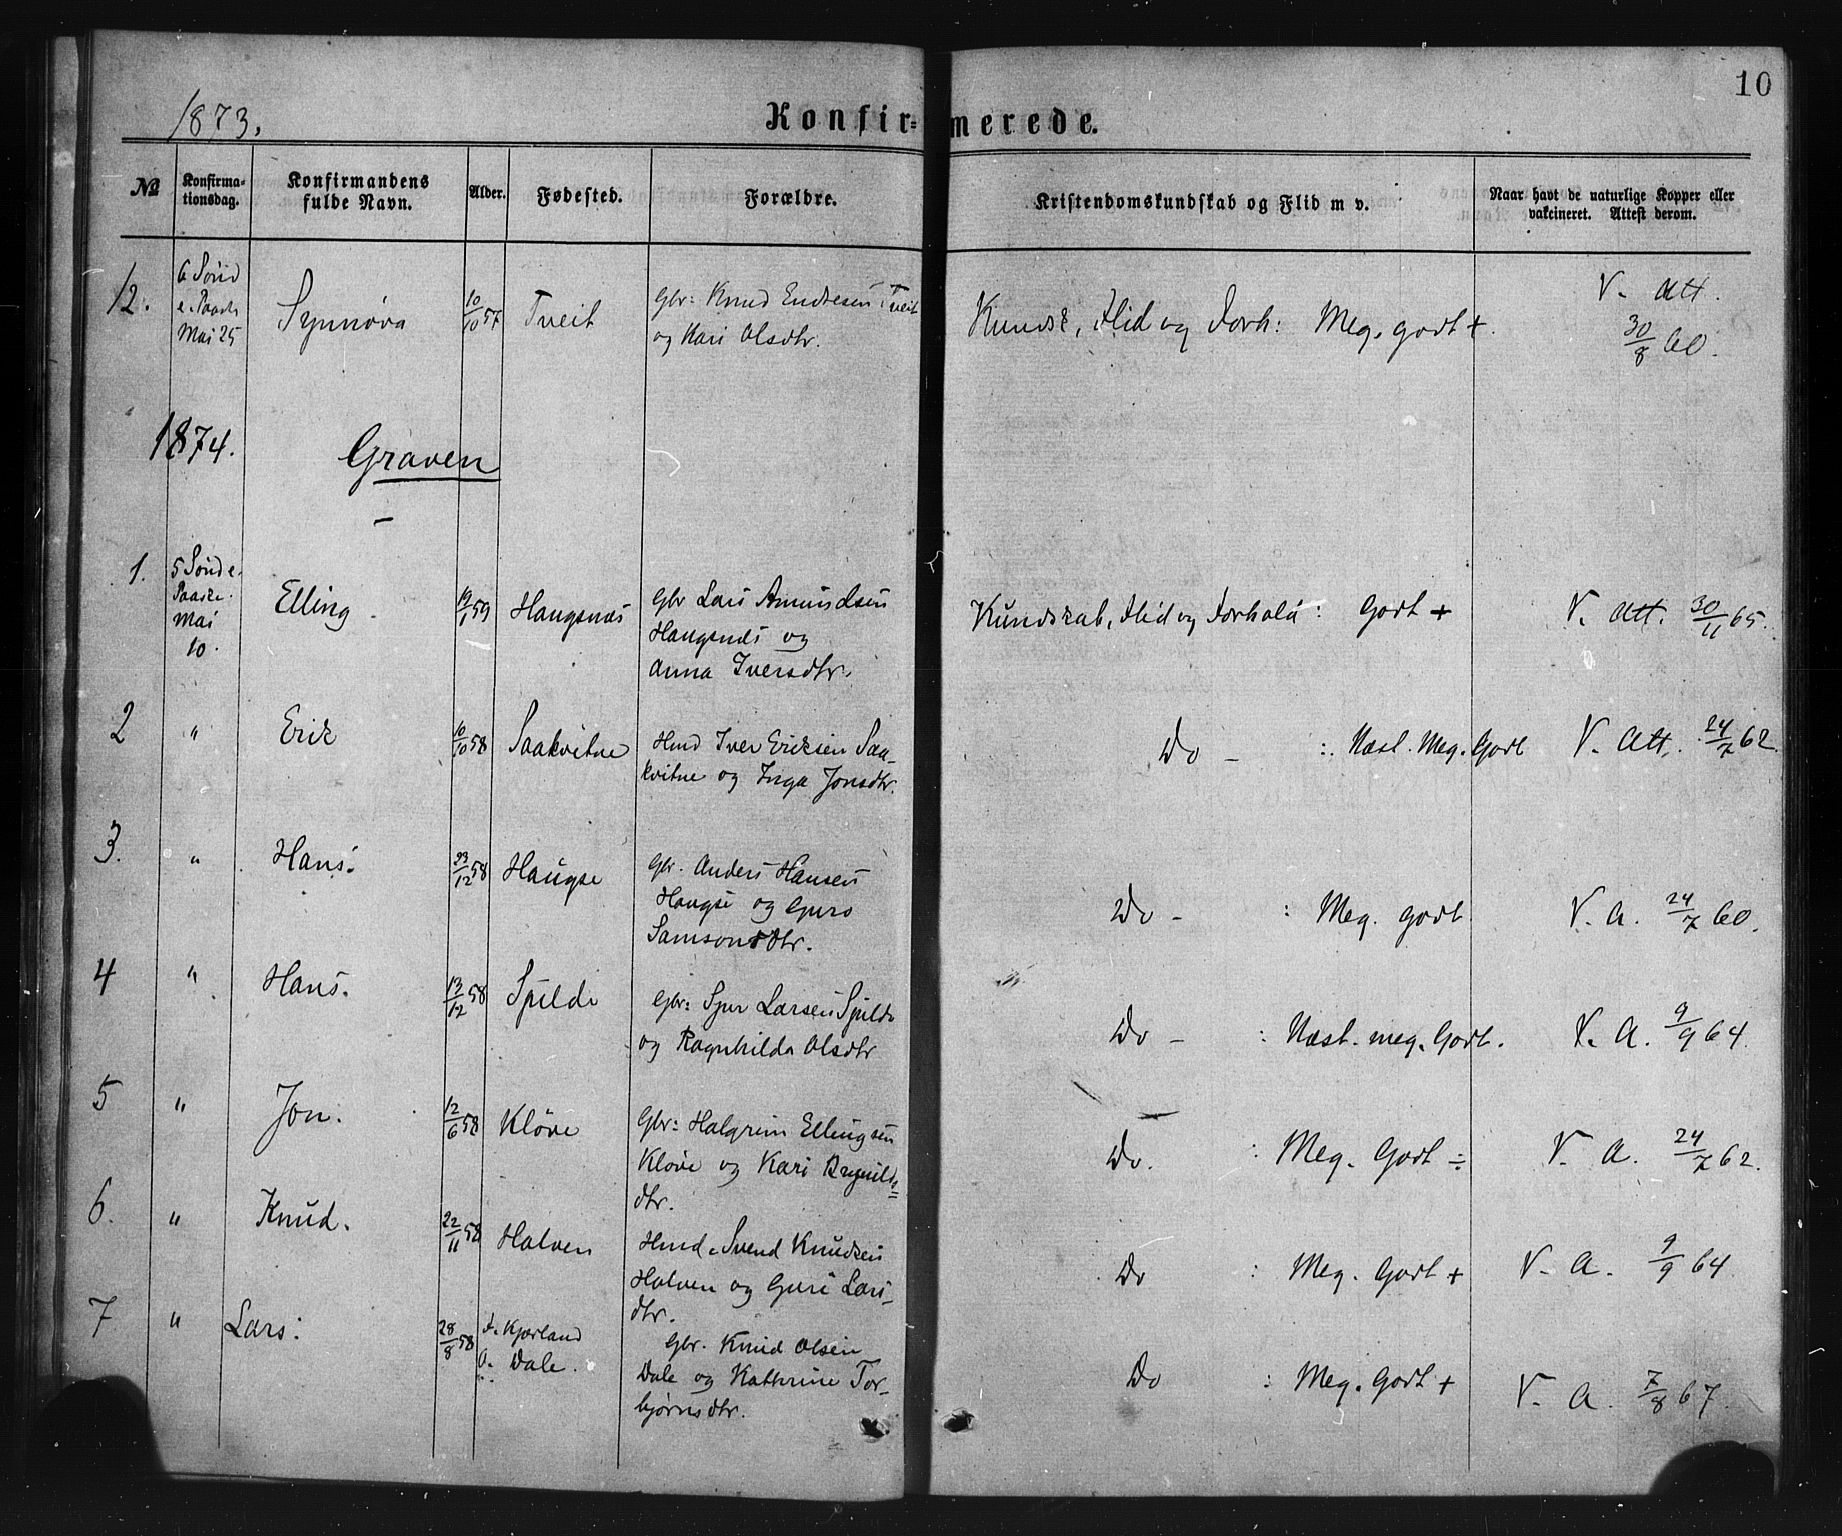 10
1873.
Konfir=merede.
No
Konfirma-
tionsdag.
Konfirmandens
fulde Navn.
Alder.
Fødested.
Forældre.
Kristendomskundskab og Flid m v.
Naar havt de naturlige Kopper eller
vakcineret. Attest derom.
12.
6 Sønd
e. Paaske
Mai 25
Synnøva
10/10 57
Tveit
Gbr: Knud Endresen Tveit
og Kari Olsdtr.
Kundsk, Flid og Forh: Meg. godt +.
V. Att.
30/8 60.
1874.
Graven
1.
5 Sønd e.
Paaske.
Mai
10.
Elling
19/1 59
Haugsnæs
Gbr Lars Amundsen
Haugsnæs og
Anna Iversdtr.
Kundskab, Flid og Forhold: Godt +
V. Att. 30/11 65.
2
"
Erik
10/10 58
Saakvitne
Hmd Iver Eriksen Saa-
kvitne og Inga Jonsdtr.
Do - : Næst. Meg. Godt
V. Att. 24/7 62.
3.
"
Hans.
23/12 58
Haugse
Gbr. Anders Hansen
Haugse og Guro
Samsonsdtr.
Do - : Meg. godt
V. A. 24/7 60.
4
"
Hans.
13/12 58
Spilde
Gbr: Sjur Larsen Spilde
og Ragnhilda Olsdtr
Do - : Næst. meg. Godt.
V. A. 9/9 64.
5
"
Jon.
12/6 58
Kløve
Gbr: Halgrim Ellingsen
Kløve og Kari Brynilds=
dtr.
Do. : Meg. Godt ÷
V. A. 24/7 62.
6.
"
Knud.
22/11 58
Halven
Hmd. Svend Knudsen
Halven og Guri Lars-
dtr.
Do : Meg. Godt +
V. A. 9/9 64.
7
"
Lars.
28/8 58
f. Kjerland
O. Dale.
Gbr. Knud Olsen
Dale og Kathrine Tor-
bjørnsdtr.
Do : Meg. Godt +
V. A. 7/8 67.